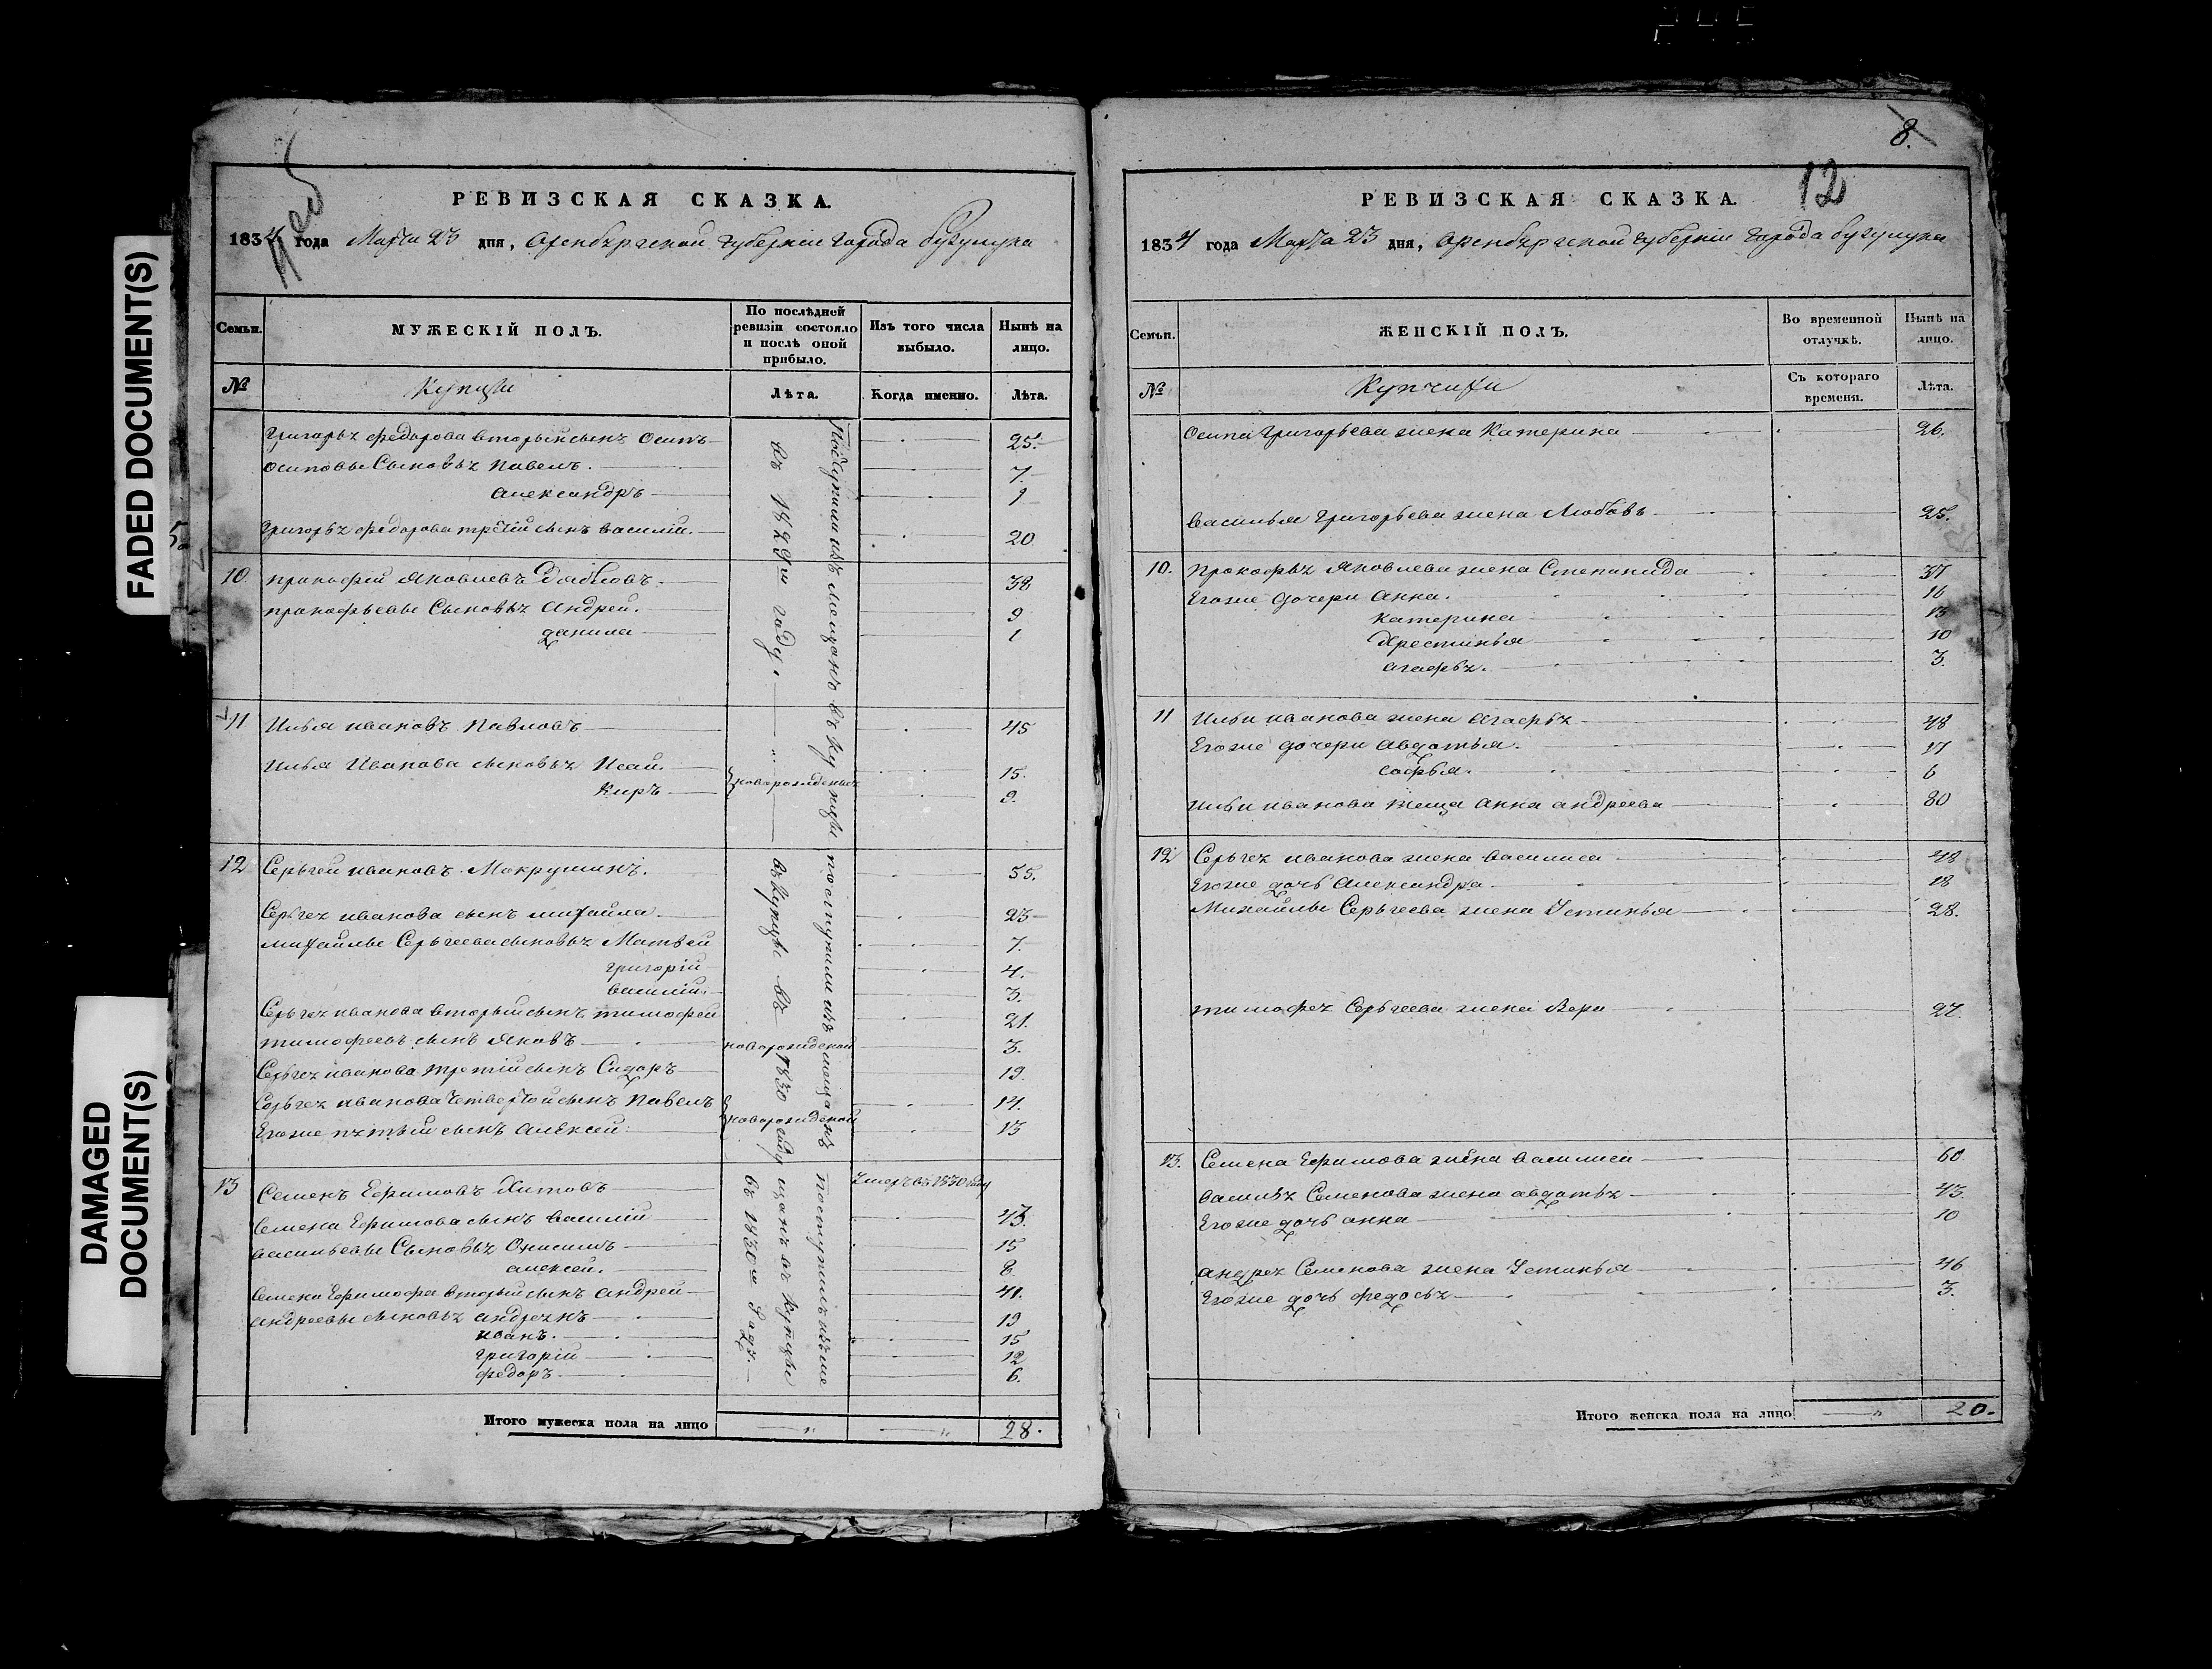 FADED DOCUMENT(S)
DAMAGED
DOCUMENT(S)
РЕВИЗСКАЯ СКАЗКА.
1834 года Марта 23 дня, Оренбургской губернии города бугульмы
Семьи.
МУЖЕСКІЙ ПОЛЪ.
По послѣдней ревизіи состояло и послѣ оной прибыло.
Изъ того числа выбыло.
Нынѣ на лицо.
№
Купцы
Лѣта.
Когда именно.
Лѣта.
Поступили изъ мещанъ въ купцы
въ 1829м году.
Григорья федорова вторый сынъ Осипъ 25.
осиповы Сыновья павелъ. 7.
александръ 1
Григорья федорова третій сынъ василій. 20
10 прокофій яковлевъ 38
прокофьевы Сыновья андрей. 9
данила 1
11 Илья ивановъ Павловъ 45
Илья Иванова сыновья Исай. 15.
киръ новорожденые 9.
поступили изъ мещанъ
въ купцы въ 1830 году
12 Серьгей ивановъ Мокрушинъ. 55.
Серьгея иванова сынъ михайла. 23
михайлы Серьгеева сыновья Матвей 7.
григорій 4.
василій. 3.
Серьгея иванова вторый сынъ тимофей 21.
тимофеевъ сынъ яковъ новорожденой 3.
Серьгея иванова третій сынъ Сидоръ 19.
Серьгея иванова четвертой сынъ павелъ 14.
Егоже пятый сынъ алексей новорожденой 13
поступили изъ ме
щанъ въ купцы
въ 1830м году.
13 Семенъ Ефимовъ Хитовъ Умеръ въ 1830 году
Семена Ефимова сынъ василій 43.
васильевы Сыновья Онисимъ 15
алексей. 8
Семена Ефимова вторый сынъ андрей 41.
андреевы сыновья андреянъ 19
иванъ. 15
григорій 12
федоръ 6.
Итого мужеска пола на лицо 28.
8.
12
РЕВИЗСКАЯ СКАЗКА.
1834 года Марта 23 дня, Оренбургской губерніи города бугульмы
Семьи.
ЖЕНСКІЙ ПОЛЪ.
Во временной отлучкѣ.
Нынѣ на лицо.
№
Купчихи
Съ котораго времени.
Лѣта.
Осипа Григорьева жена Катерина 26.
василья Григорьева жена Любовь 25.
10. Прокофья яковлева жена Степанида 37
Егоже дочери анна. 16
катерина 13
Хрестинья 10
агафья. 3.
11 Ильи иванова жена агафья 48
Егоже дочери авдотья. 17
софья. 6
ильи иванова теща анна андреева 80
12 Серьгея иванова жена василиса 48
Егоже дочь александра 18
Михайлы Серьгеева жена Устинья 28.
тимофея Серьгеева жена Вера 27.
13. Семена Ефимова жена василиса 60
василья Семенова жена авдотья 43.
Егоже дочь анна 10
андрея Семенова жена Устинья 46
Егоже дочь федосья 3.
Итого женска пола на лицо 20.